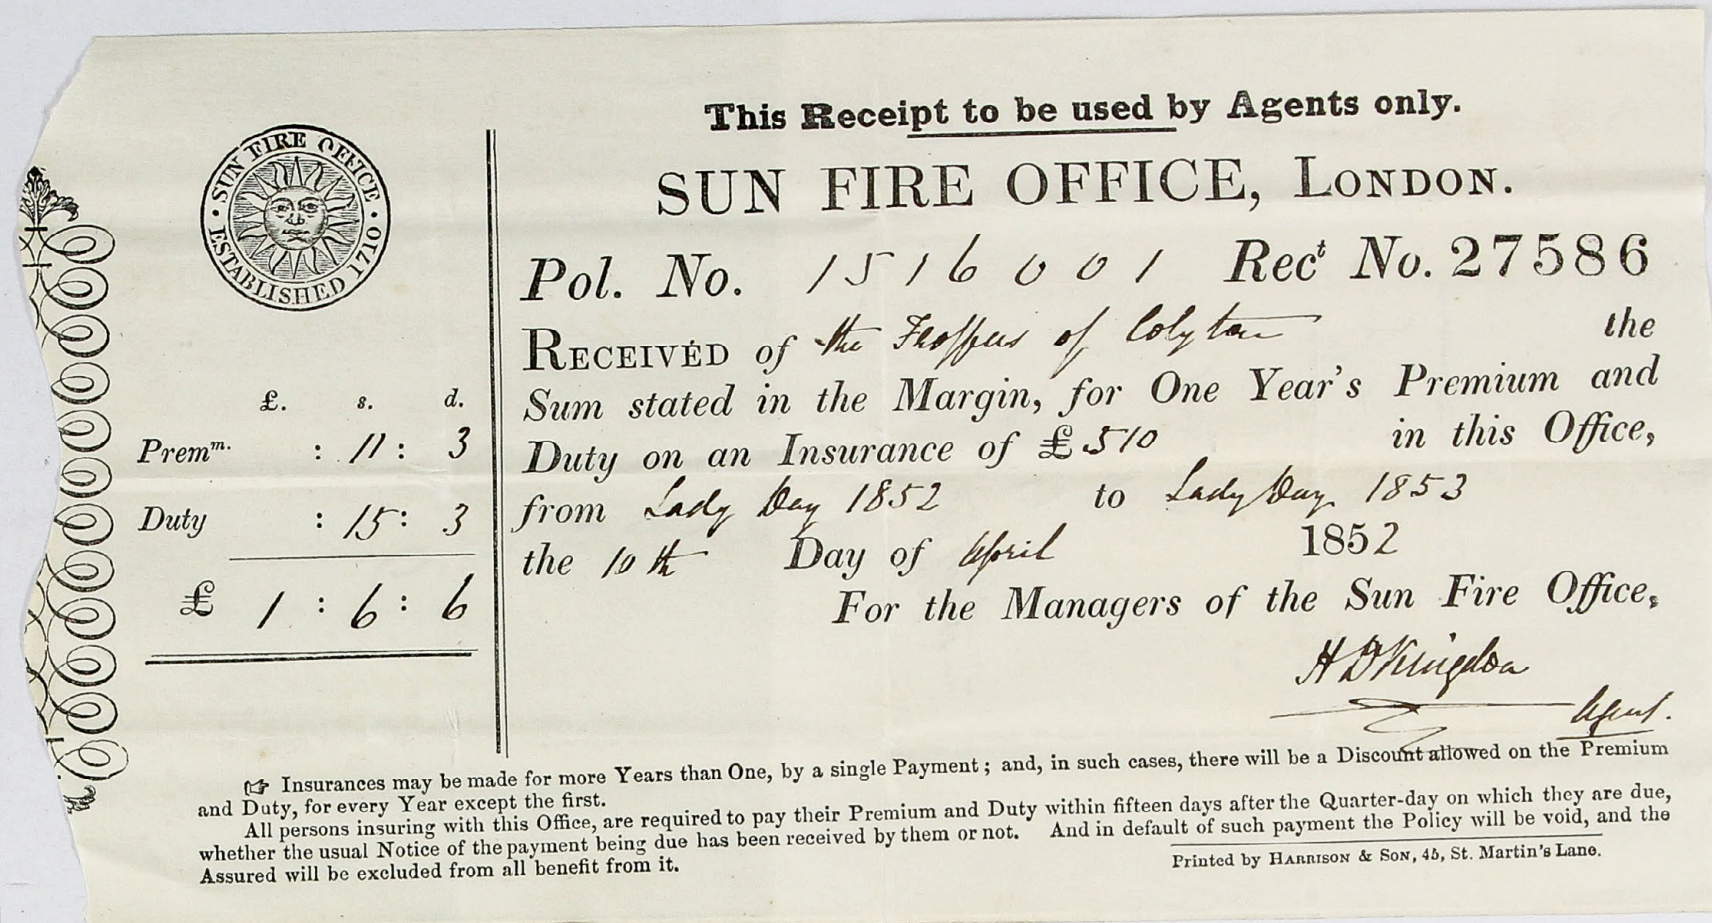 This Receipt to be used by Agents only.
SUN FIRE OFFICE, LONDON.
· SUN FIRE OFFICE · ESTABLISHED 1710
Pol. No. 1516001 Rect No. 27586
RECEIVED of the Feoffees of Colyton the
Sum stated in the Margin, for One Year's Premium and
Duty on an Insurance of £510 in this Office,
from Lady Day 1852 to Lady Day 1853
the 10th Day of April 1852
For the Managers of the Sun Fire Office,
H D Kingdon
Agent.
£. s. d.
Premm. : 11 : 3
Duty : 15 : 3
£ 1 : 6 : 6
☞ Insurances may be made for more Years than One, by a single Payment; and, in such cases, there will be a Discount allowed on the Premium
and Duty, for every Year except the first.
All persons insuring with this Office, are required to pay their Premium and Duty within fifteen days after the Quarter-day on which they are due,
whether the usual Notice of the payment being due has been received by them or not. And in default of such payment the Policy will be void, and the
Assured will be excluded from all benefit from it.
Printed by HARRISON & SON, 45, St. Martin's Lane.